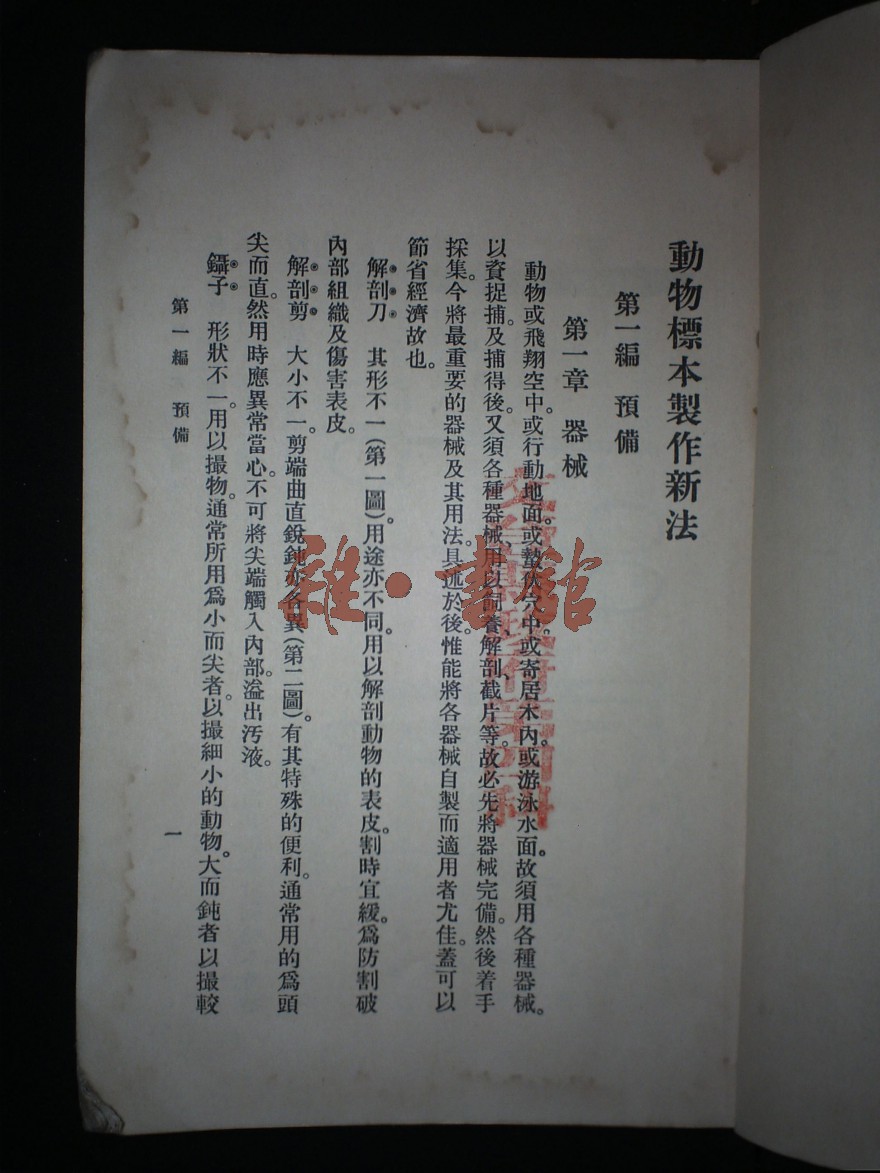 動物標本製作新法
第一編　預備
第一章　器械
動物或飛翔空中。或行動地面。或蟄伏穴中。或寄居木內。或游泳水面。故須用各種器械。
以資捉捕。及捕得後。又須各種器械、用以飼養、解剖、截片等。故必先將器械完備。然後着手
採集。今將最重要的器械及其用法。具述於後。惟能將各器械自製而適用者尤佳。蓋可以
節省經濟故也。
解剖刀　其形不一(第一圖)。用途亦不同。用以解剖動物的表皮。割時宜緩。爲防割破
內部組織及傷害表皮。
解剖剪　大小不一。剪端曲直銳鈍亦各異(第二圖)。有其特殊的便利。通常用的爲頭
尖而直。然用時應異常當心。不可將尖端觸入內部。溢出汚液。
鑷子　形狀不一。用以撮物。通常所用爲小而尖者。以撮細小的動物。大而鈍者以撮較
第一編　預備
一
雜·書館